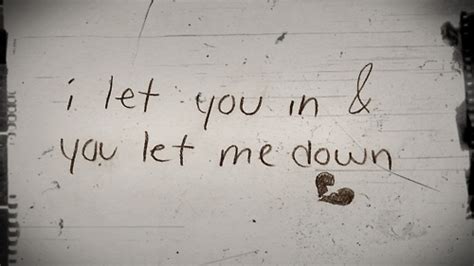 i let you in &
you let me down